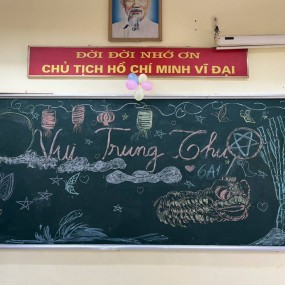 ĐỜI ĐỜI NHỚ ƠN
CHỦ TỊCH HỒ CHÍ MINH VĨ ĐẠI
Vui Trung Thu
6A1